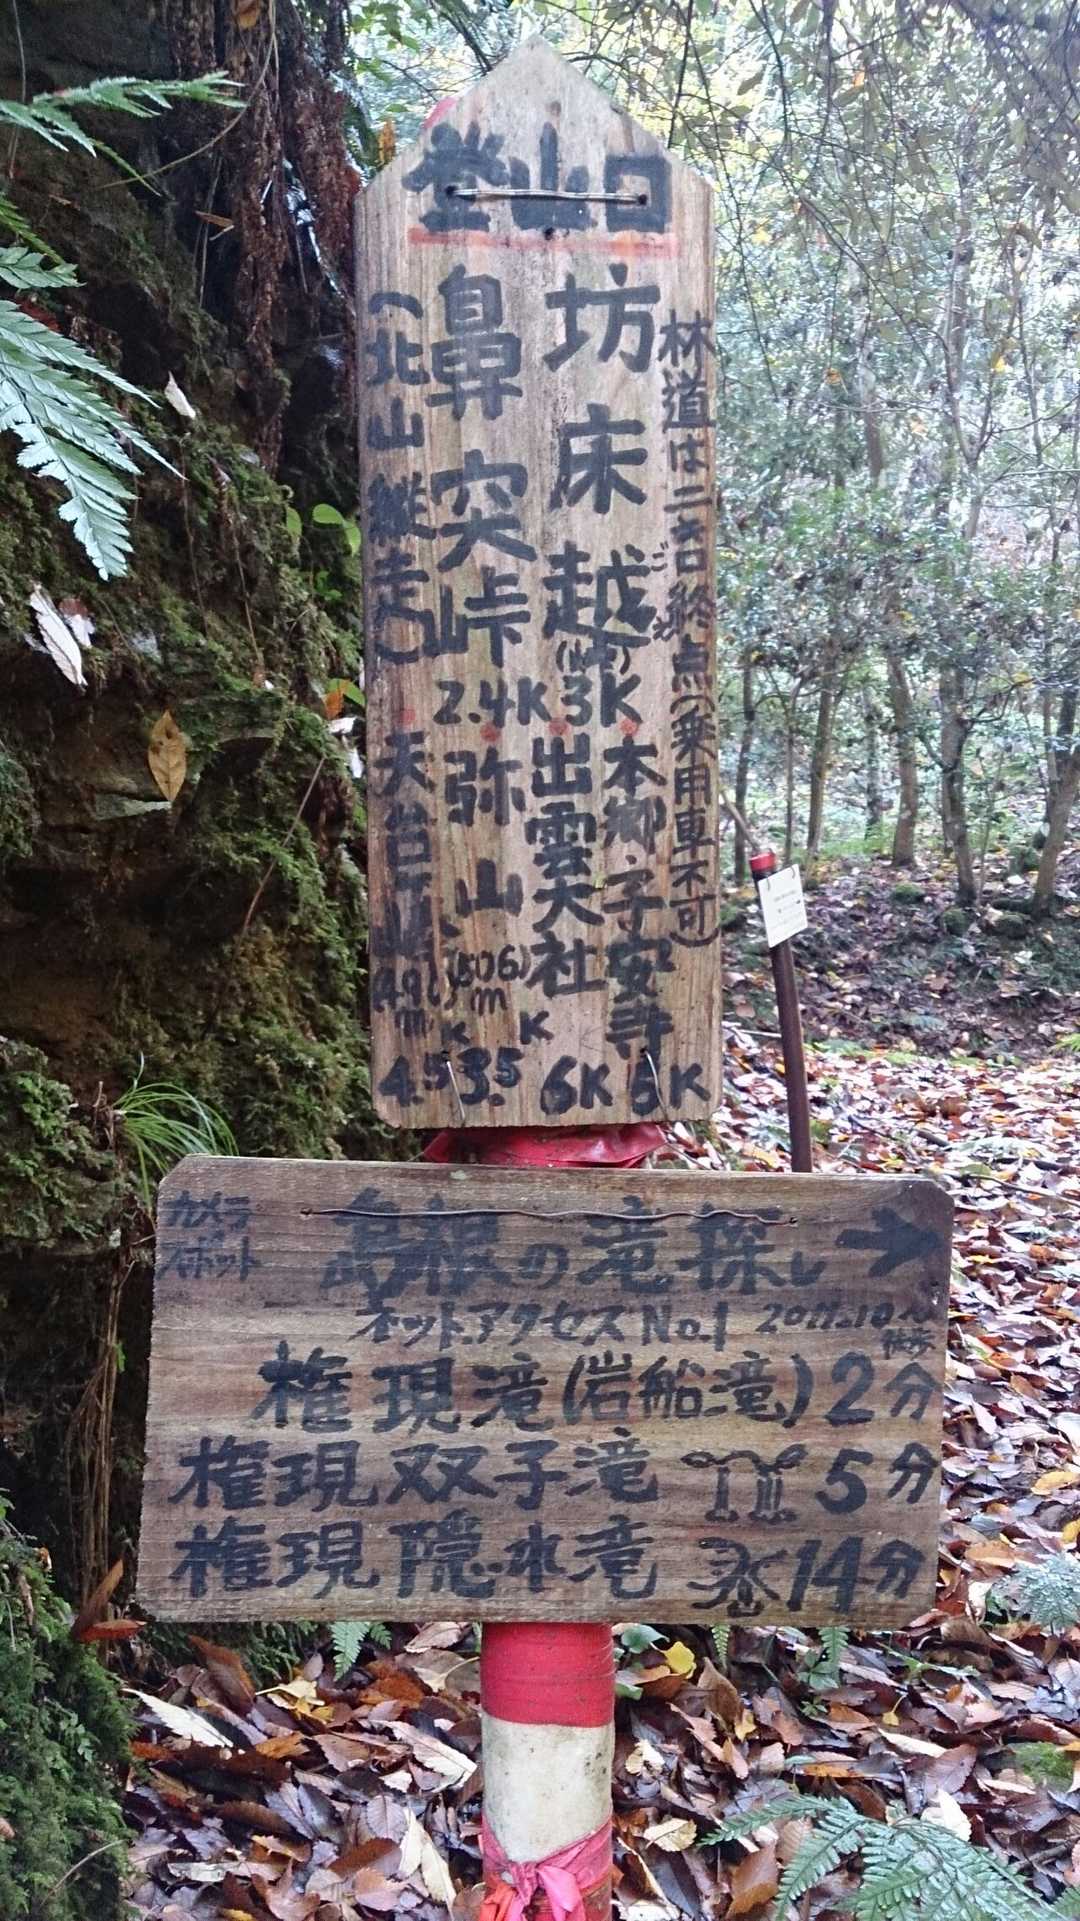 登山口
林道は二

終点(乗用車不可)
坊床越
3K
鼻突峠
2.4K
(北山縦走)
本郷子安寺
5K
出雲大社
6K
弥山
(506)m
3.5K
天台ヶ峰
4.5K
カメラスポット
島根の滝探し
→
ネットアクセスNo.1 2011.10~
徒歩
権現滝(岩船滝)2分
権現双子滝 5分
権現隠水滝 14分